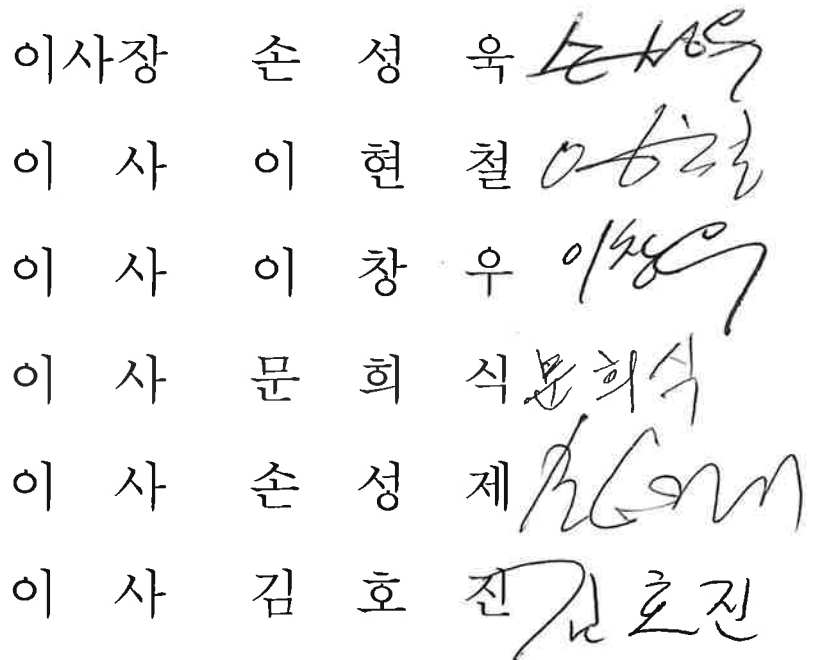 이사장 손 성 욱 손성욱
이 사 이 현 철
이 사 이 창 우 이창우
이 사 문 희 식 문희식
이 사 손 성 제
이 사 김 호 진 김호진